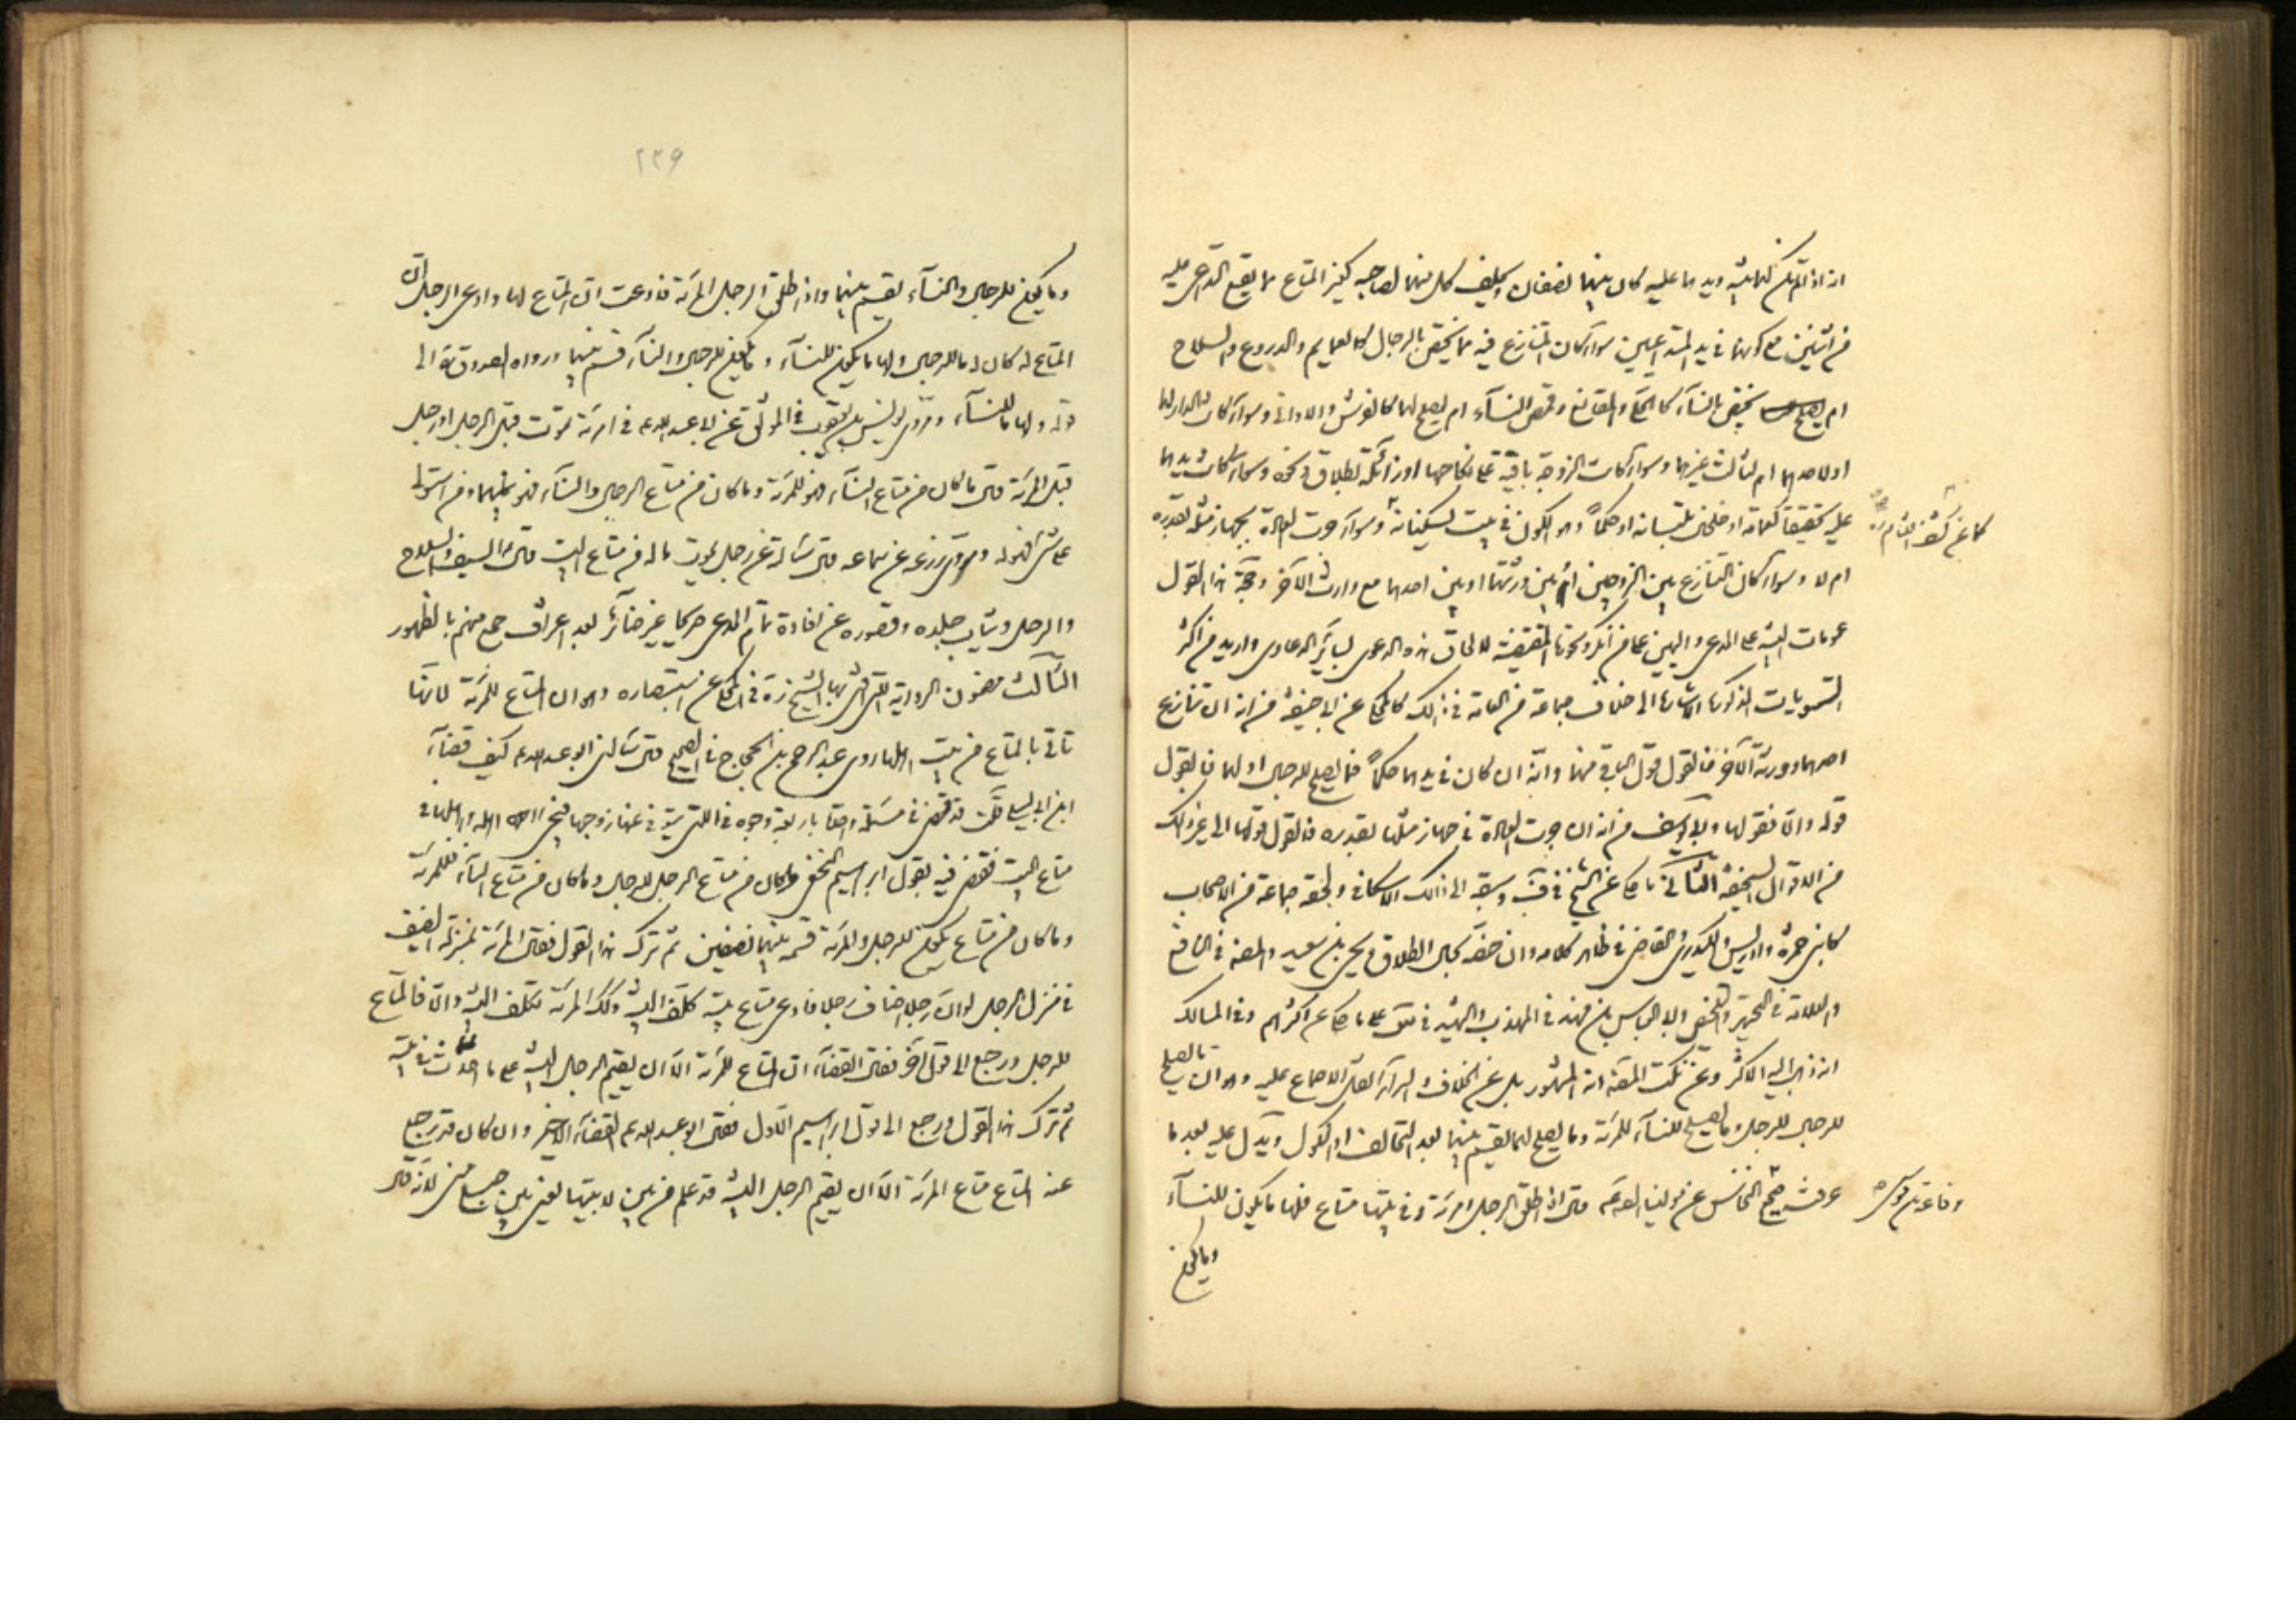 انه اذا لم تكن لهما بينة ويدهما عليه كان بينهما نصفان ويحلف كل منهما لصاحبه كغير المتاع مما يقع التداعي عليه
من اثنين مع كونهما في يد المتداعيين سواء كان المتنازع فيه مما يختص بالرجال كالعمايم والدروع والسلاح
ام يختص بالنسآء كالحلي والمقانع وقمص النسآء ام يصلح لهما كالفرش والاواني وسواء كانت الدار لهما
او لاحدهما ام لثالث غيرهما وسواء كانت الزوجية باقية على نكاحها او زائلة بطلاق ونحوه وسواء كانت يدهما
عليه تحقيقا كعمامة او خلخال يلبسانه او حكماً وهو الكون في بيت يسكنانه وسواء جرت العادة بجهاز مثلها بقدره
كما عن كشف اللثام
ام لا وسواء كان التنازع بين الزوجين ام بين ورثتهما او بين احدهما مع وارث الآخر وحجة هذا القول
عمومات البينة على المدعي واليمين على من انكر ونحوها المقتضية لالحاق هذه الدعوى بسائر الدعاوى واريد من اكثر
التسويات المذكورة الاشارة الى خلاف جماعة من العامة في ذلك كالمحكي عن ابي حنيفة من انه ان تنازع
احدهما وورثة الآخر فالقول قول الباقي منهما وانه ان كان في يدهما حكماً فما يصلح للرجال او لهما فالقول
قوله والا فقولها وابي يوسف من انه ان جرت العادة في جهاز مثلها بقدره فالقول قولها الى غير ذلك
من الاقوال السخيفة الثاني ما حكي عن الشيخ في ف وسبقه الى ذلك الاسكافي ولحقه جماعة من الاصحاب
كابني حمزة وادريس والكيدري والقاضي في ظاهر كلامه وان خصه بحال الطلاق ويحيى بن سعيد والمصنف في النافع
والعلامة في التحرير والتلخيص وابي العباس بن فهد في المهذب والشهيد في ك على ما حكي عن اكثرهم وفي المسالك
انه ذهب اليه الاكثر وعن نكت المصنف انه المشهور بل عن الخلاف والسرائر نقل الاجماع عليه وهو ان ما يصلح
للرجال للرجل وما يصلح للنسآء للمرئة وما يصلح لهما يقسم بينهما بعد التحالف او النكول ويدل عليه بعد ما
عرفت صحيح النخاس عن مولينا الصادق قال اذا طلق الرجل امرئة وفي بيتها متاع فلها ما يكون للنسآء
وما يكون
٢٣٩
وما يكون للرجال والنسآء يقسم بينهما واذا طلق الرجل المرئة فادعت ان المتاع لها وادعى الرجل ان
المتاع له كان له ما للرجال ولها ما يكون للنسآء وما يكون للرجال والنسآء قسم بينهما ورواه الصدوق الى
قوله ولها ما للنسآء وروى يونس بن يعقوب في الموثق عن ابي عبد الله في امرئة تموت قبل الرجل او رجل
قبل المرئة قال ما كان من متاع النسآء فهو للمرئة وما كان من متاع الرجال والنسآء فهو بينهما ومن استولى
على شيء فهو له وروى زرعه عن سماعه قال سئلته عن رجل يموت ماله من متاع البيت قال السيف والسلاح
والرحل وثياب جلده وقصوره عن افادة تمام المدعى صريحا غير ضائر بعد اعتراف جمع منهم بالظهور
الثالث مضمون الرواية التي افتى بها الشيخ ره في المحكي عن استبصاره وهو ان المتاع للمرئة لانها
تاتي بالمتاع من بيت اهلها روى عبد الرحمن بن الحجاج في الصحيح قال سئلني ابو عبد الله كيف قضآء
ابن ابي ليلى قلت قد قضى في مسئلة واحدة باربعة وجوه في التي يتوفى عنها زوجها فيجيء اهله واهلها في
متاع البيت فقضى فيه بقول ابراهيم النخعي ما كان من متاع الرجل للرجل وما كان من متاع النسآء للمرئة
وما كان من متاع يكون للرجل وللمرئة قسمه بينهما نصفين ثم ترك هذا القول فقال المرئة بمنزلة الضيف
في منزل الرجل لو ان رجلا اضاف رجلا فادعى متاع بيته كلف البينة وكذلك المرئة تكلف البينة والا فالمتاع
للرجل ورجع الى قول آخر فقال القضآء ان المتاع للمرئة الا ان يقيم الرجل البينة على ما احدث في بيته
ثم ترك هذا القول ورجع الى قول ابراهيم الاول فقال ابو عبد الله القضآء الاخير وان كان قد رجع
عنه المتاع متاع المرئة الا ان يقيم الرجل البينة قد علم من بين لابتيها يعني بين جبلي منى لانه قال